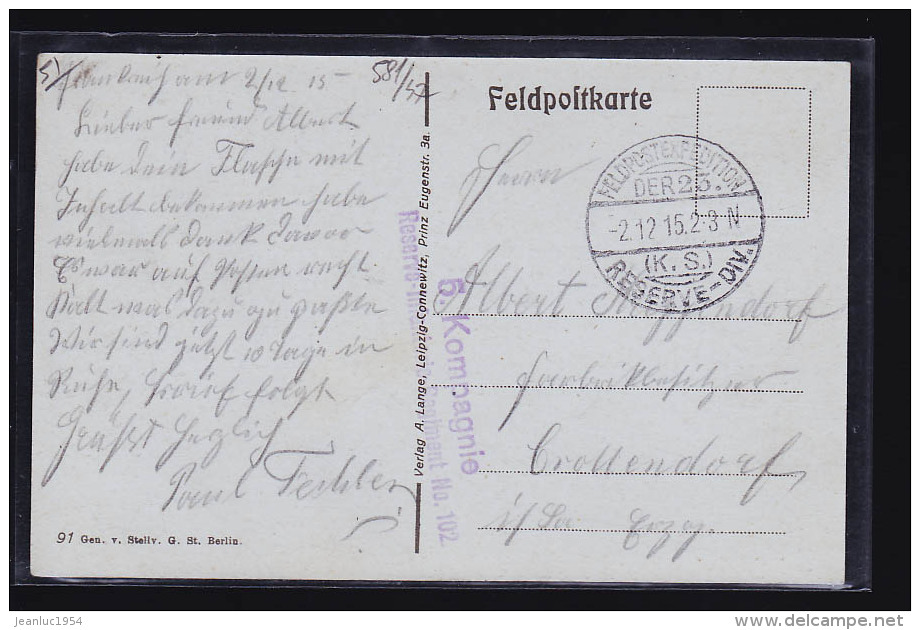 am 2/12 15
581/47
Lieber Freund Albert
habe dein Flasche mit
Inhalt bekommen habe
vielmals Dank davor
Es war auf Posten recht
kalt was dazu zu passte
Wir sind jetzt 10 Tage in
Ruhe, Brief folgt
Grüsst herzlich
Paul
91 Gen. v. Stellv. G. St. Berlin.
Verlag A. Lange, Leipzig-Connewitz, Prinz Eugenstr. 3a.
5. Kompagnie
Reserve-Inf. Regiment No. 102
Feldpostkarte
FELDPOSTEXPEDITION
DER 23.
-2.12 15.2-3 N
(K. S.)
RESERVE-DIV.
Herrn
Albert
Fabrikbesitzer
Crottendorf
i/Sa Erzg.
jeanluc1954
www.delcampe.net